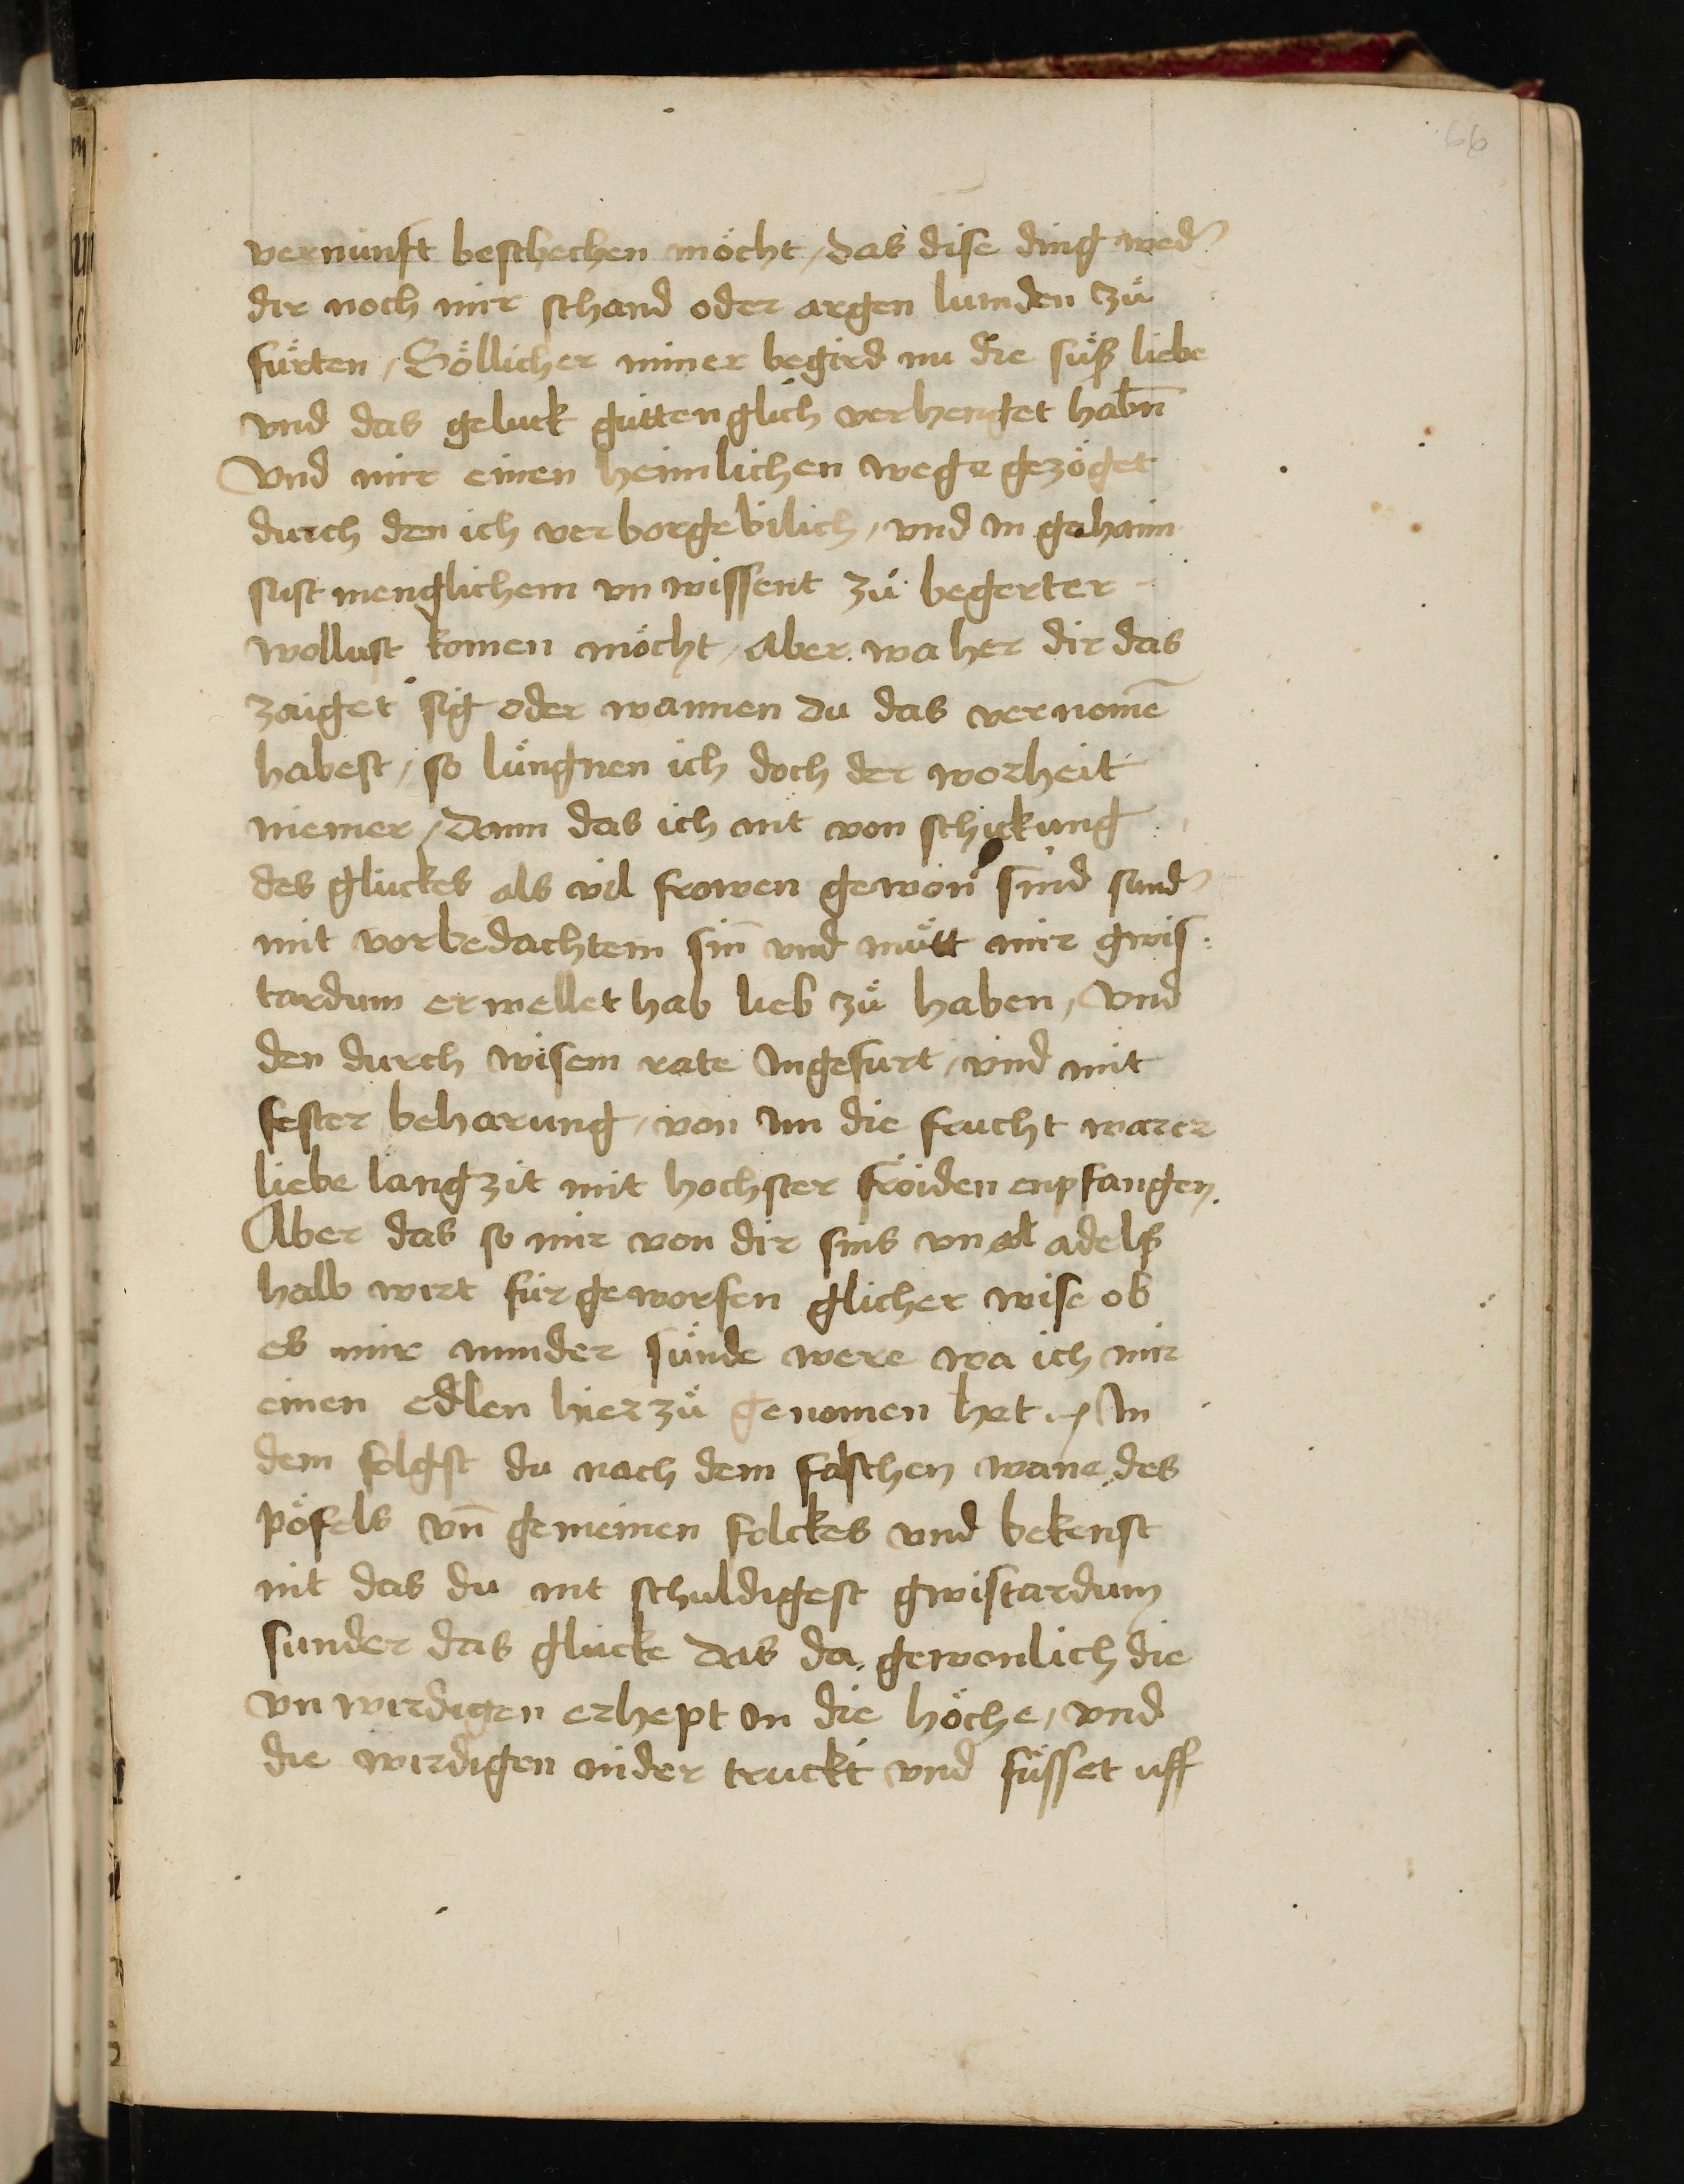 66
vernunft beschechen möcht / das dise ding wedˀ
dir noch mir schand oder argen lumden zů
fürten / Söllicher miner begird nu die süß liebe
vnd das geluck guttenglich verhenget habn̄
Vnd mir einen heimlichen wege gezöget
durch den ich verborgenlich / vnd in gehaim
sust menglichem vnwissent zů begerter
wollust komen möcht / aber wa her dir das
zaiget sig oder wannen du das vernomē
habest / so lüngnen ich doch der worheit
niemer / dann das ich nit von schickung
des gluckes als vil frowen gewon sind sundˀ
mit vorbedachtem sin̄ vnd mütt mir gwis:
tardum erwellet hab lieb zů haben / Vnd
den durch wisem rate Ingefurt / vnd mit
fester beharung / von im die frucht warer
liebe lang zit mit hochster fröiden enpfangen.
Aber das so mir von dir sins vn adelß
halb wirt für geworfen glicher wise ob
es mir minder sünde were wa ich mir
einen edlen hier zů genomen het / In
dem folgst du nach dem falschen wane des
pöfels vn̄ gemeinen folckes vnd bekenst
nit das du nit schuldigest gwistardum
sunder das glucke das da gewonlich die
vnwirdigen erhept in die höche / vnd
die wirdigen nider truckt vnd füsset uff